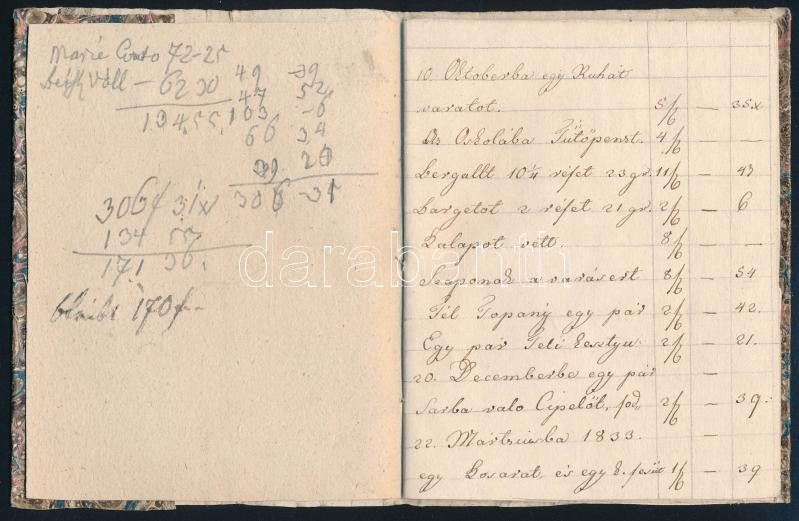 Marie Conto 72-25
Väll - 6230
134 55
49 -39
47 52
103 -6
66 34
39 20
306 -31
306f 31x
134 55
171 36
bleibt 170f-
10. Oktoberba egy Ruhát
varatot. 5f - 35x
Az Oskolába Fűtőpenzt. 4f - -
Bergallt 10¼ réfet 23 gr. 11f - 43
Bargetot 2 réfet 21 gr. 2f - 6
Kalapot vett. 8f - -
Szaponak a varásert 8f - 54
Tél Topany egy pár 2f - 42.
Egy pár Teli kesztyu 2f - 21.
20. Decemberbe egy pár -
Sarba valo Cipellőt, fod„ 2f - 39.-
22. Mártziusba 1833. -
egy Kosarat és egy k. fesüt 1f - 39
darabanth